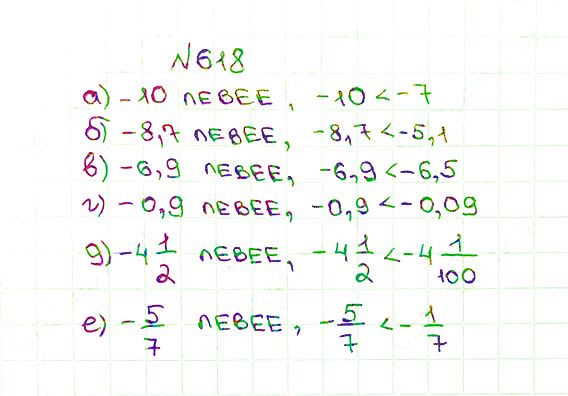 №618
а) -10 левее, -10 < -7
б) -8,7 левее, -8,7 < -5,1
в) -6,9 левее, -6,9 < -6,5
г) -0,9 левее, -0,9 < -0,09
д) -4 1/2 левее, -4 1/2 < -4 1/100
е) -5/7 левее, -5/7 < -1/7